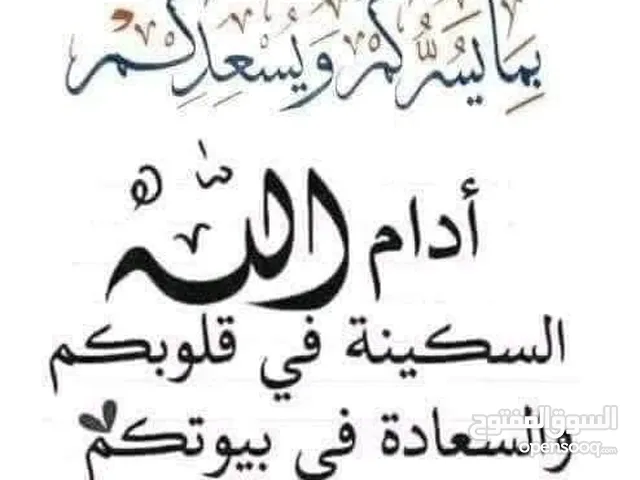 بِمَا يَسُرُّكُمْ وَيُسْعِدِكُمْ
أدام اللّٰهُ
السكينة في قلوبكم
والسعادة في بيوتكم
السوق المفتوح
opensooq.com